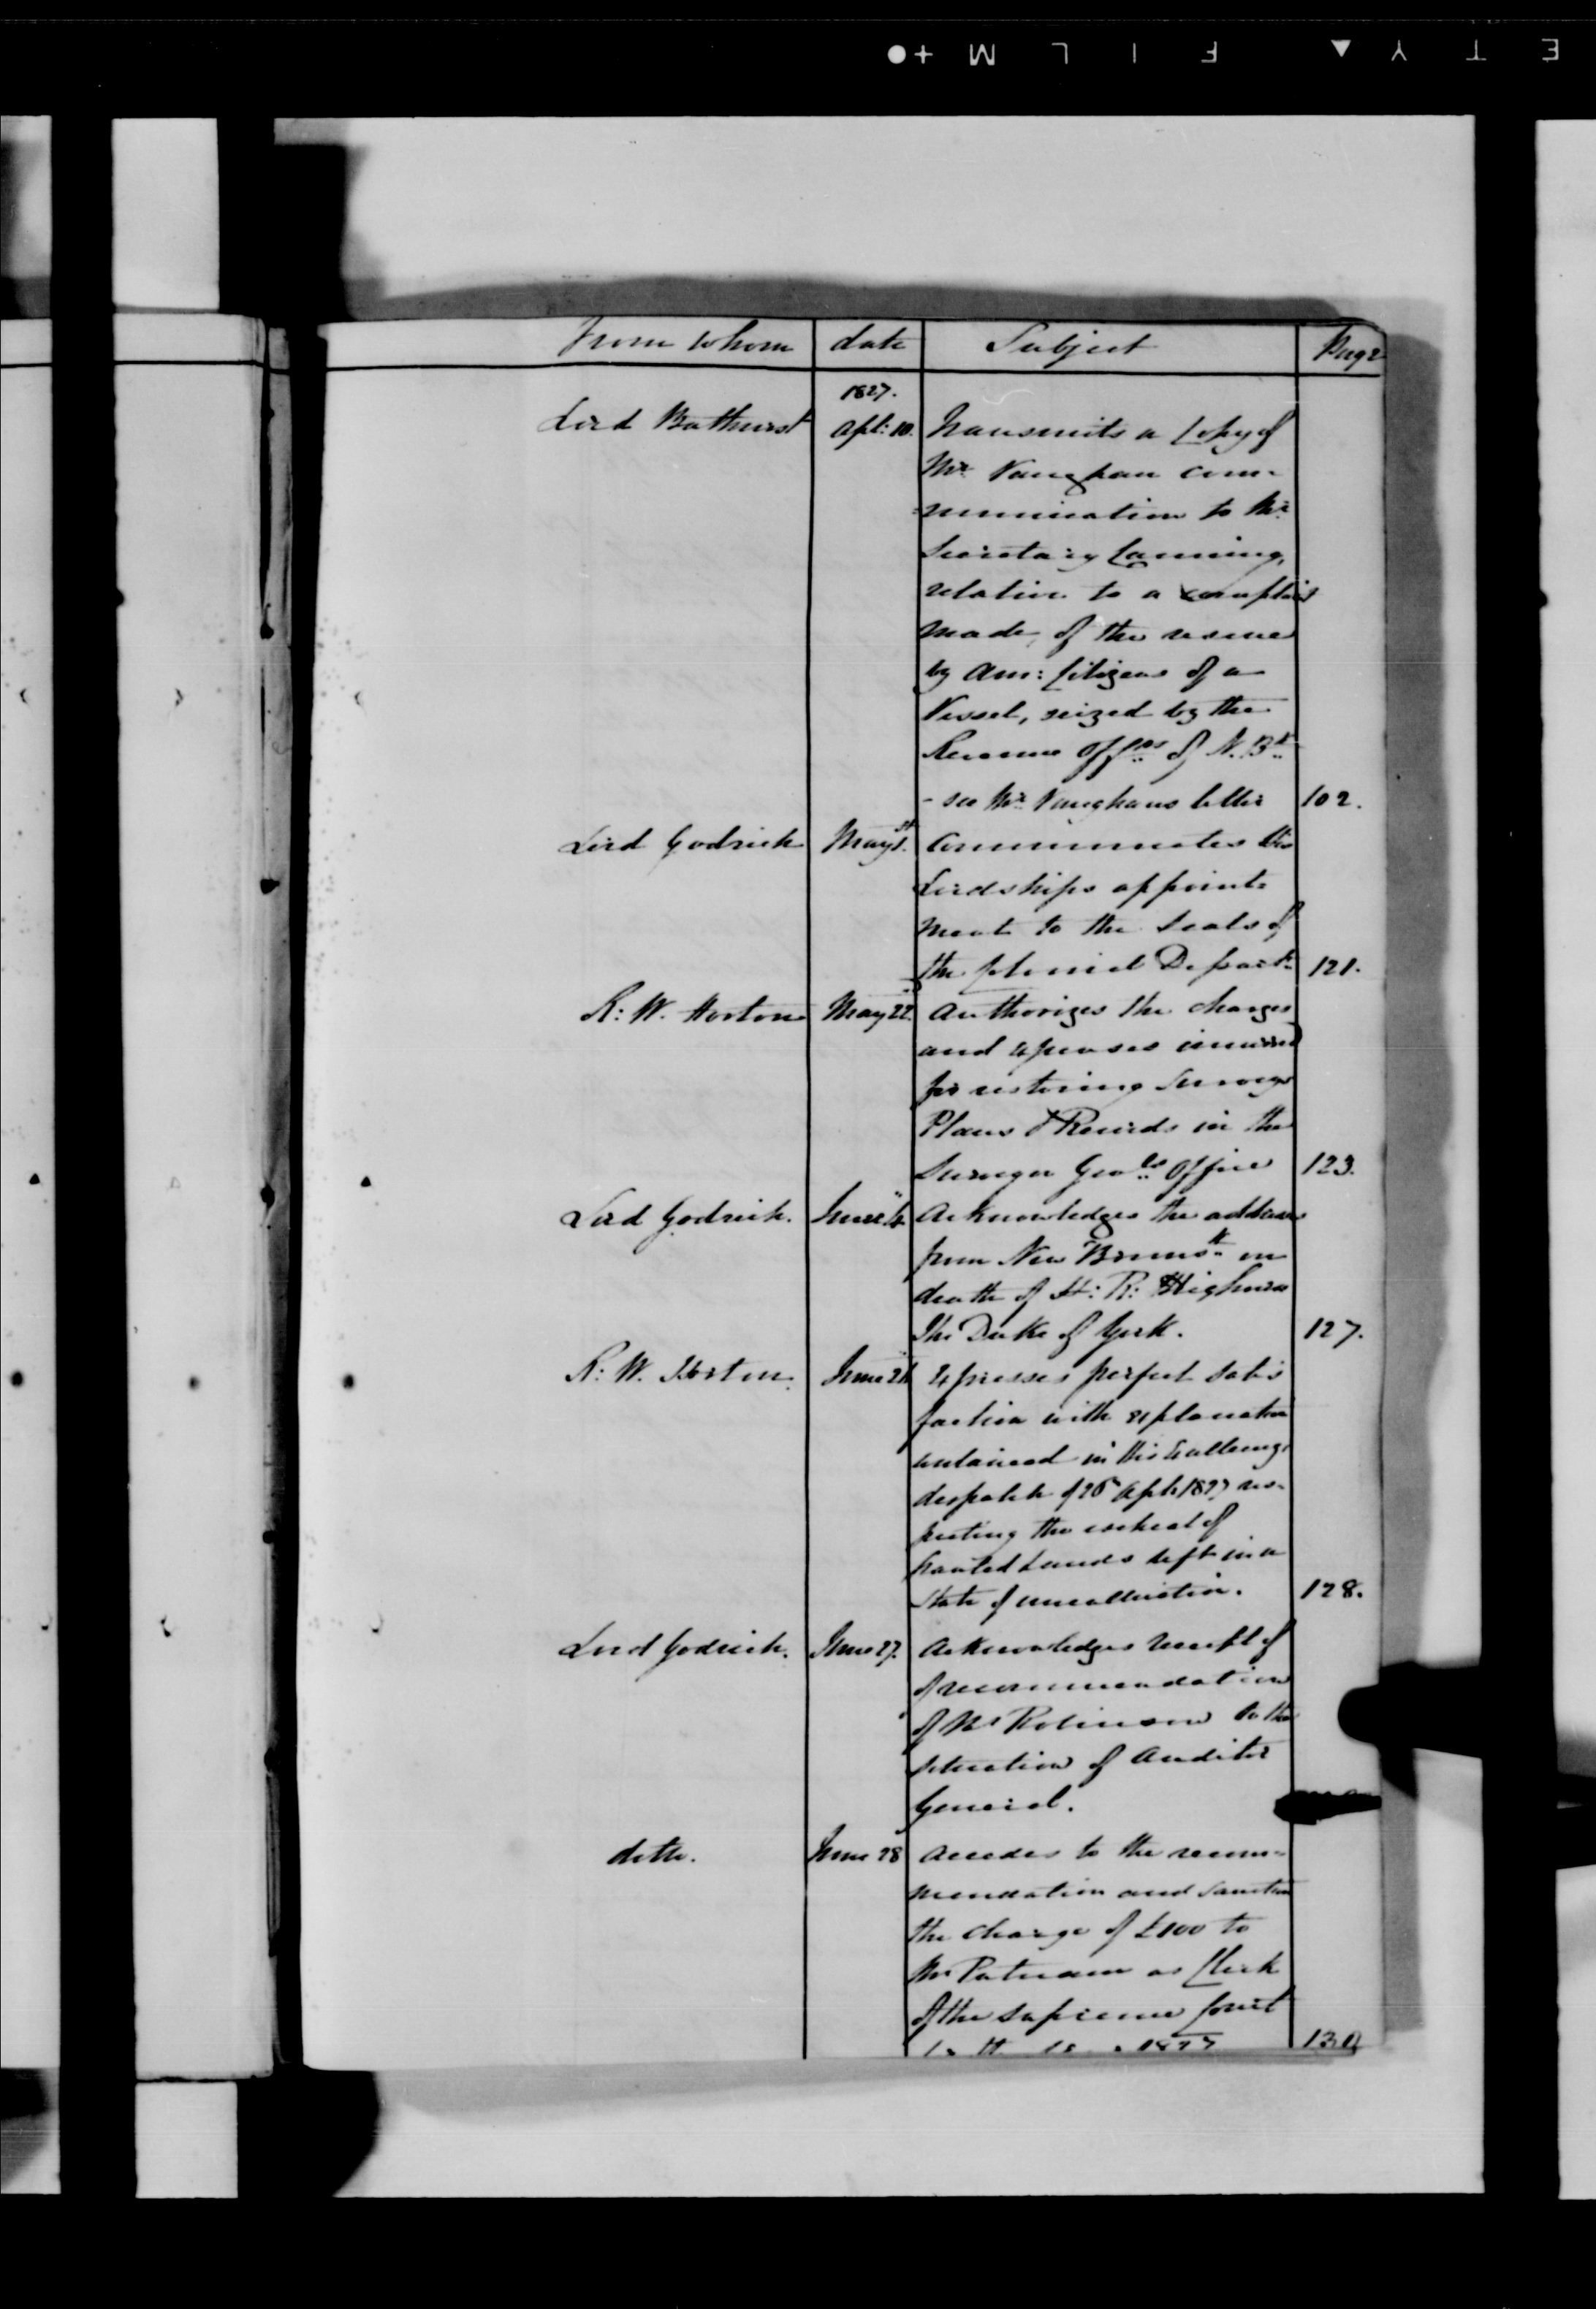 E T Y ▲ F I L M +●
From Whom | date | Subject | Page
1827.
Lord Bathurst | Apl: 10. | Transmits a Copy of
Mr. Vaughan com-
=munication to Mr.
Secretary Canning,
relative to a complaint
made, of the rescue
by Am: Citizens of a
Vessel, seized by the
Revenue Offrs of N. Bk
- see Mr. Vaughans letter | 102.
Lord Godrich | May 1st. | Communicates his
Lordships appoint-
ment to the Seals of
the Colonial Depart. | 121.
R: W. Horton | May 22. | Authorizes the charges
and expenses incurred
for restoring Surveys
Plans & Records in the
Surveyor Genls Office | 123.
Lord Godrich. | June | Acknowledges the address
from New Brunsk on
death of H: R: Highness
The Duke of York. | 127.
R: W. Horton. | June 21 | Expresses perfect satis
faction with explanation
contained in His Excellency's
despatch of 26 Apl 1827 res-
pecting the escheat of
Granted Lands left in a
State of uncultivation. | 128.
Lord Godrich. | June 27. | Acknowledges receipt of
of recommendation
of Mr Robinson to the
situation of Auditor
General.
ditto. | June 28 | Accedes to the recom-
mendation and sanction
the charge of £100 to
Mr Putnam as Clerk
of the Supreme Court
1827 | 130